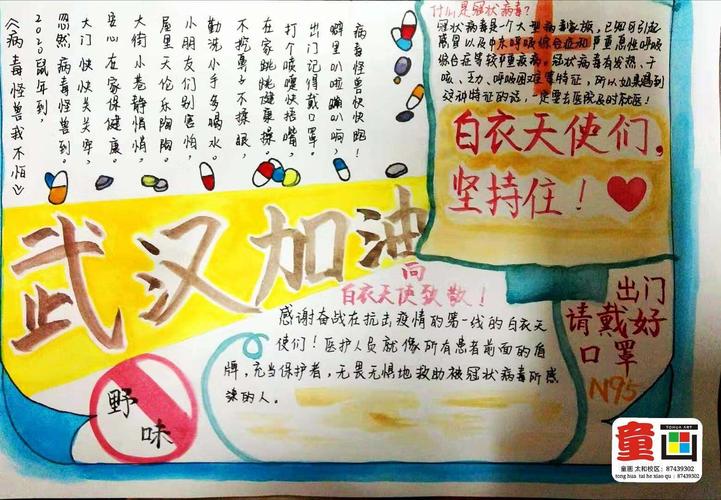 《病毒怪兽我不怕》
2020鼠年到，
忽然病毒怪兽到。
大门快快关关牢，
安心在家保健康。
大街小巷静悄悄，
屋里天伦乐陶陶。
小朋友们别害怕，
勤洗小手多喝水。
不挖鼻子不揉眼，
在家跳跳健康操。
打个喷嚏快捂嘴，
出门记得戴口罩。
噼里叭啦
病毒怪兽快快跑！
什么是冠状病毒？
冠状病毒是一个大型病毒家族，已知可引起
感冒以及中东呼吸综合征和严重急性呼吸
综合征等较严重疾病。冠状病毒有发热、干
咳、乏力、呼吸困难等特征，所以如果遇到
这动特征的话，一定要去医院及时就医！
白衣天使们，
坚持住！
武汉加油
向
白衣天使致敬！
感谢奋战在抗击疫情的第一线的白衣天
使们！医护人员就像所有患者前面的盾
牌，充当保护者，无畏无惧地救助被冠状病毒所感
染的人。
出门
请戴好
口罩
N95
野味
童
TONGHUA ART
童画 太和校区：87439302
tong hua tai he xiao qu：87439302